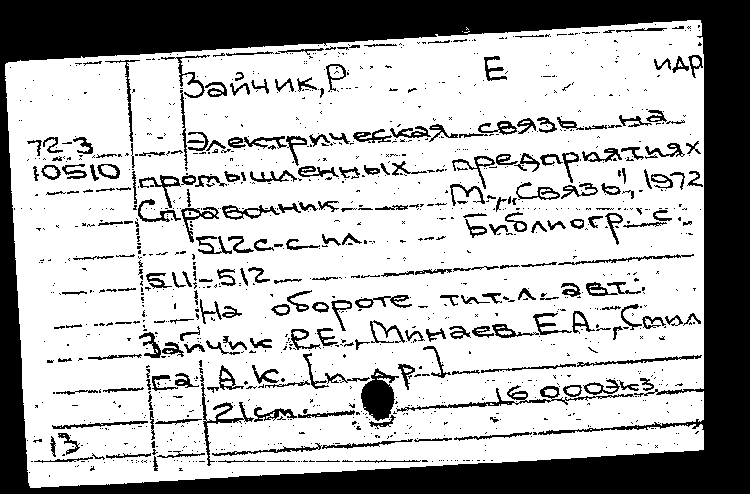 Зайчик, Р Е идр
72-3 Электрическая связь на
10510 промышленных предприятиях
Справочник М., „Связь", 1972
512с. с ил. Библиогр.: с.
511-512
На обороте тит. л. авт.:
Зайчик Р.Е., Минаев Е.А., Стил
га А.К. [и др.]
21 см. 16 000 экз
13